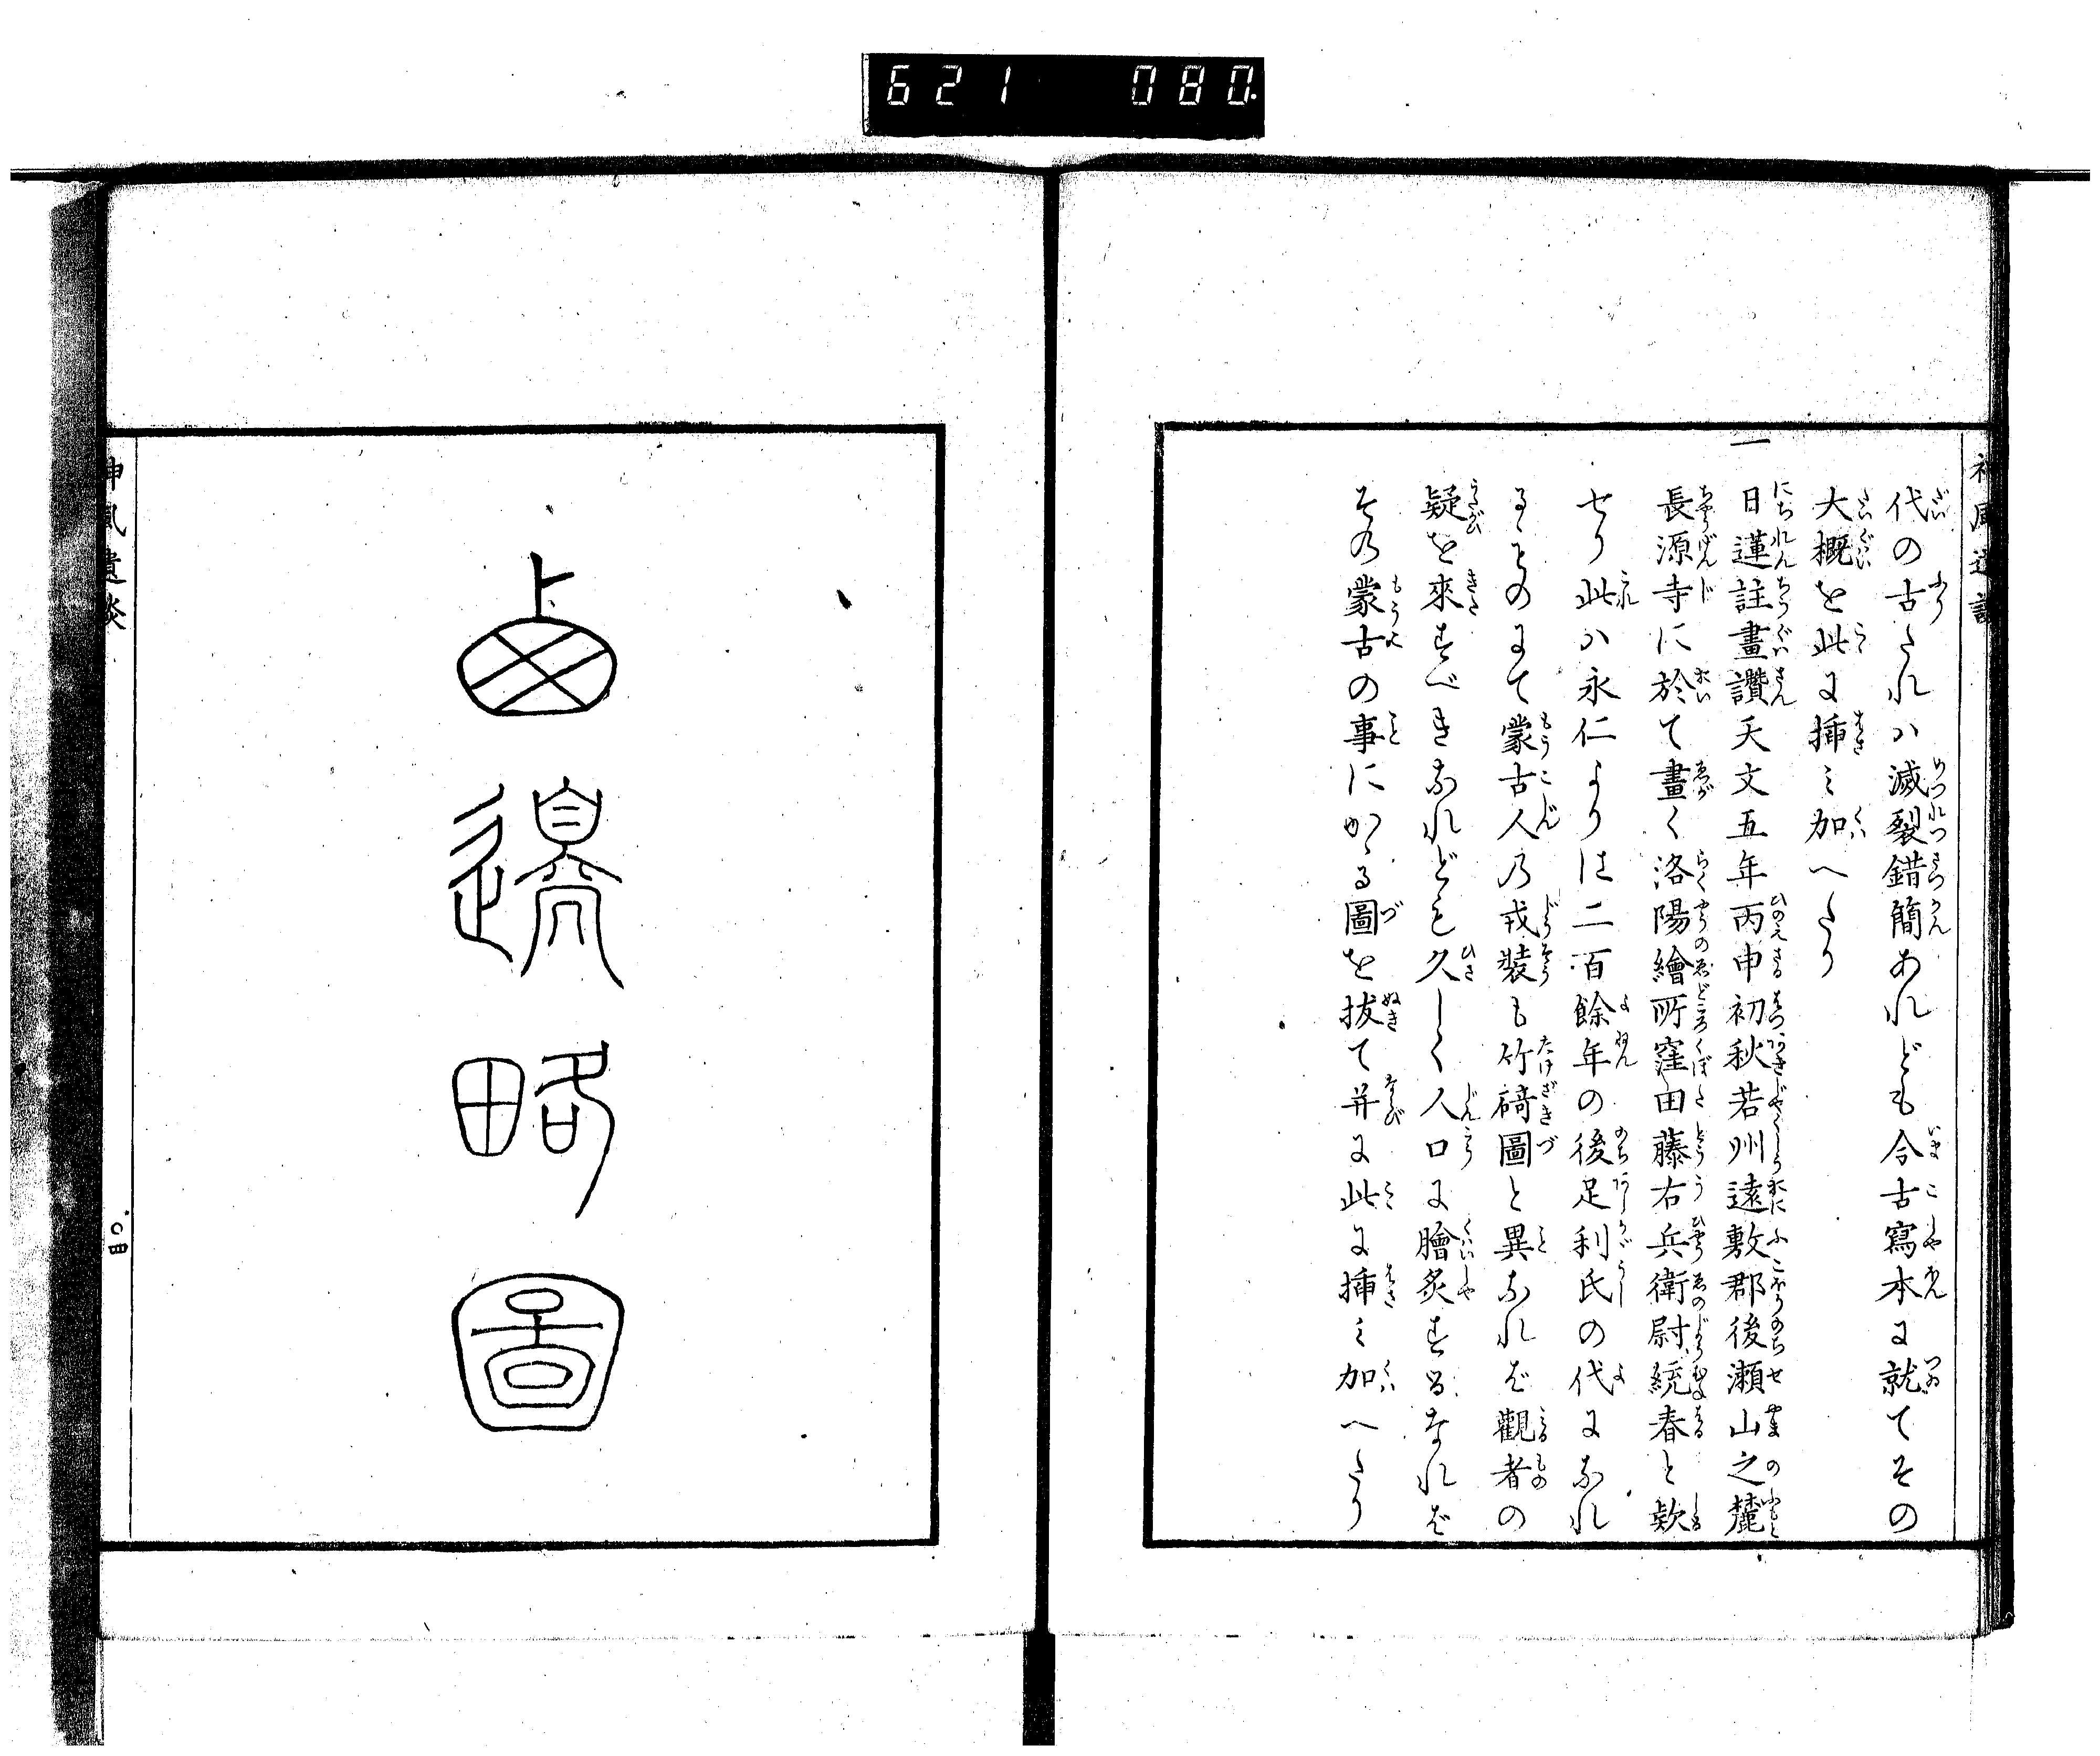 621 080
代の古たれハ滅裂錯簡あれども今古寫本に就てその
大概を此に挿ミ加へたり
一日蓮註畫讚天文五年丙申初秋若州遠敷郡後瀬山之麓
長源寺に於て畫く洛陽繪所窪田藤右兵衛尉統春と款
せり此ハ永仁よりは二百餘年の後足利氏の代になれ
るものにて蒙古人の戎裝も竹﨑圖と異なれば觀者の
疑を來すべきなれども久しく人口に膾炙するなれば
その蒙古の事にかゝる圖を抜て并に此に挿ミ加へたり
神風遺談
邊略圖